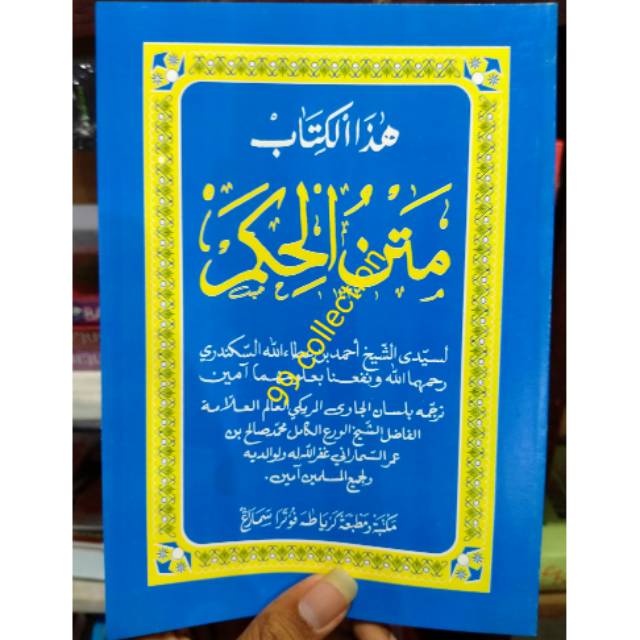 هذا الكتاب
متن الحكم
لسيدى الشيخ أحمد بن عطاء الله السكندري
رحمهما الله ونفعنا بعلومهما آمين
ترجمه بلسان الجاوى المريكي العالم العلامة
الفاضل الشيخ الورع الكامل محمد صالح بن
عمر السماراني غفر الله له ولوالديه
ولجميع المسلمين آمين.
مكتبة ومطبعة كرياطه فوترا سماراغ
99 collection